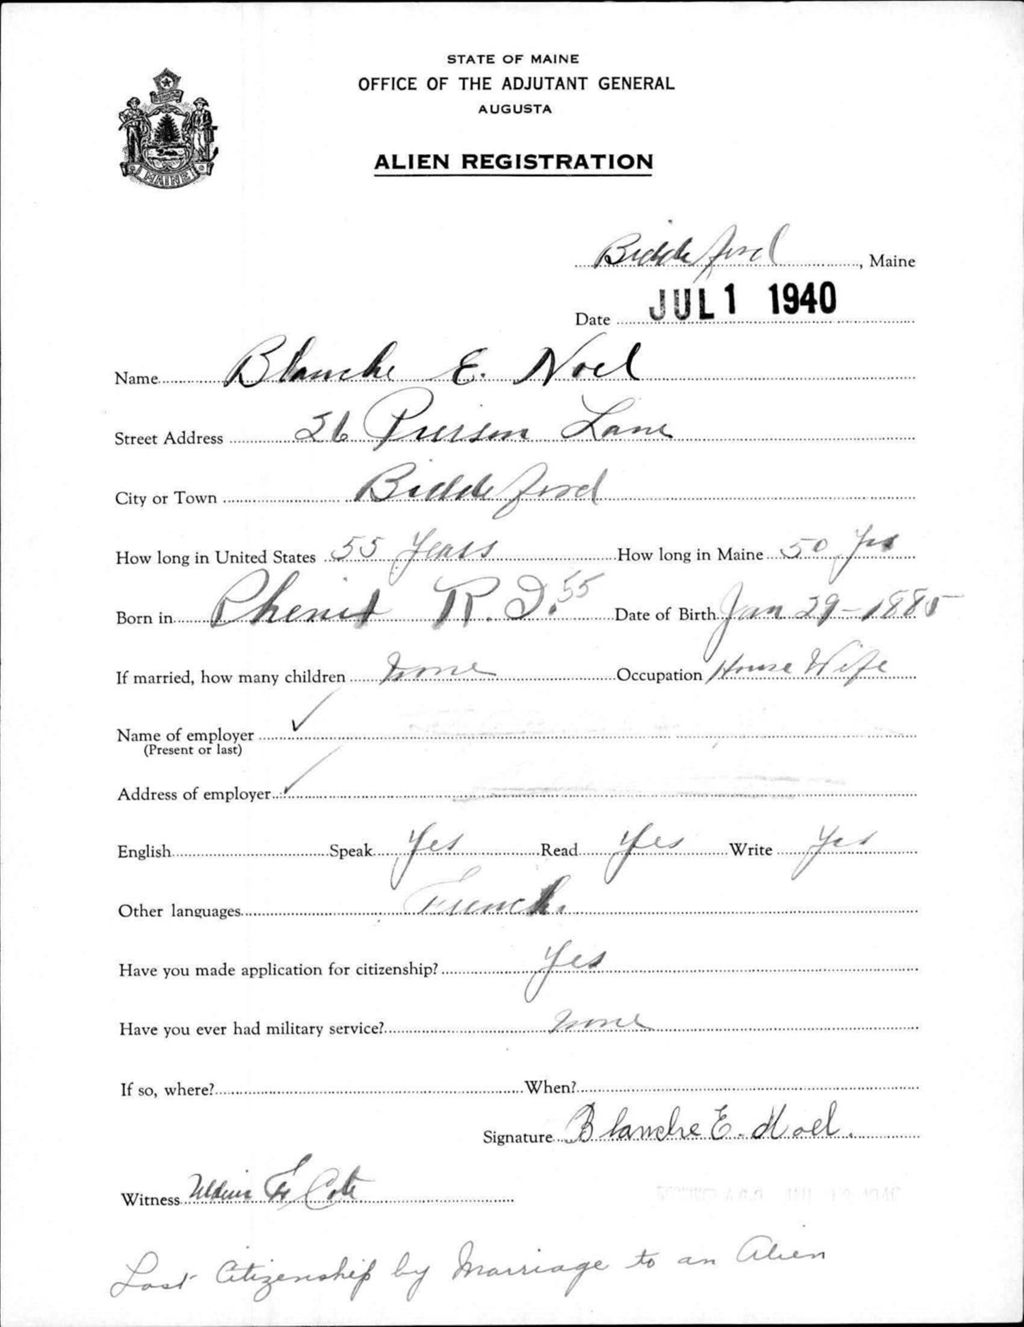 STATE OF MAINE
OFFICE OF THE ADJUTANT GENERAL
AUGUSTA
ALIEN REGISTRATION
MAINE
Biddeford, Maine
Date JUL 1 1940
Name Blanche E. Noel
Street Address 26 Pierson Lane
City or Town Biddeford
How long in United States 55 Years How long in Maine 50 Yrs
Born in Phenix R.I. 55 Date of Birth Jan 29-1885
If married, how many children None Occupation House Wife
Name of employer
(Present or last)
Address of employer
English Speak Yes Read Yes Write Yes
Other languages French
Have you made application for citizenship? Yes
Have you ever had military service? None
If so, where? When?
Signature Blanche E. Noel.
Witness Cote
Lost Citizenship by Marriage to an Alien